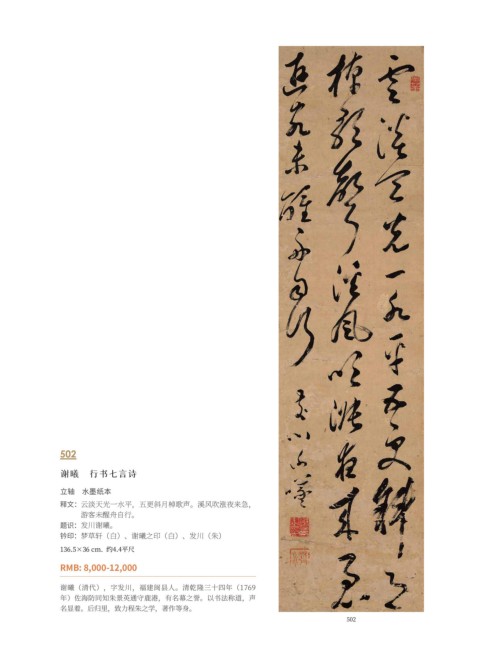 雲淡天光一水平五更斜月
棹歌聲溪風吹漲夜来急
遊客未醒舟自行
发川谢曦
502
谢曦 行书七言诗
立轴 水墨纸本
释文：云淡天光一水平，五更斜月棹歌声。溪风吹涨夜来急，
游客未醒舟自行。
题识：发川谢曦。
钤印：梦草轩（白）、谢曦之印（白）、发川（朱）
136.5×36 cm. 约4.4平尺
RMB: 8,000-12,000
谢曦（清代），字发川，福建闽县人。清乾隆三十四年（1769
年）佐海防同知朱景英通守鹿港，有名幕之誉。以书法称道，声
名显着。后归里，致力程朱之学，著作等身。
502